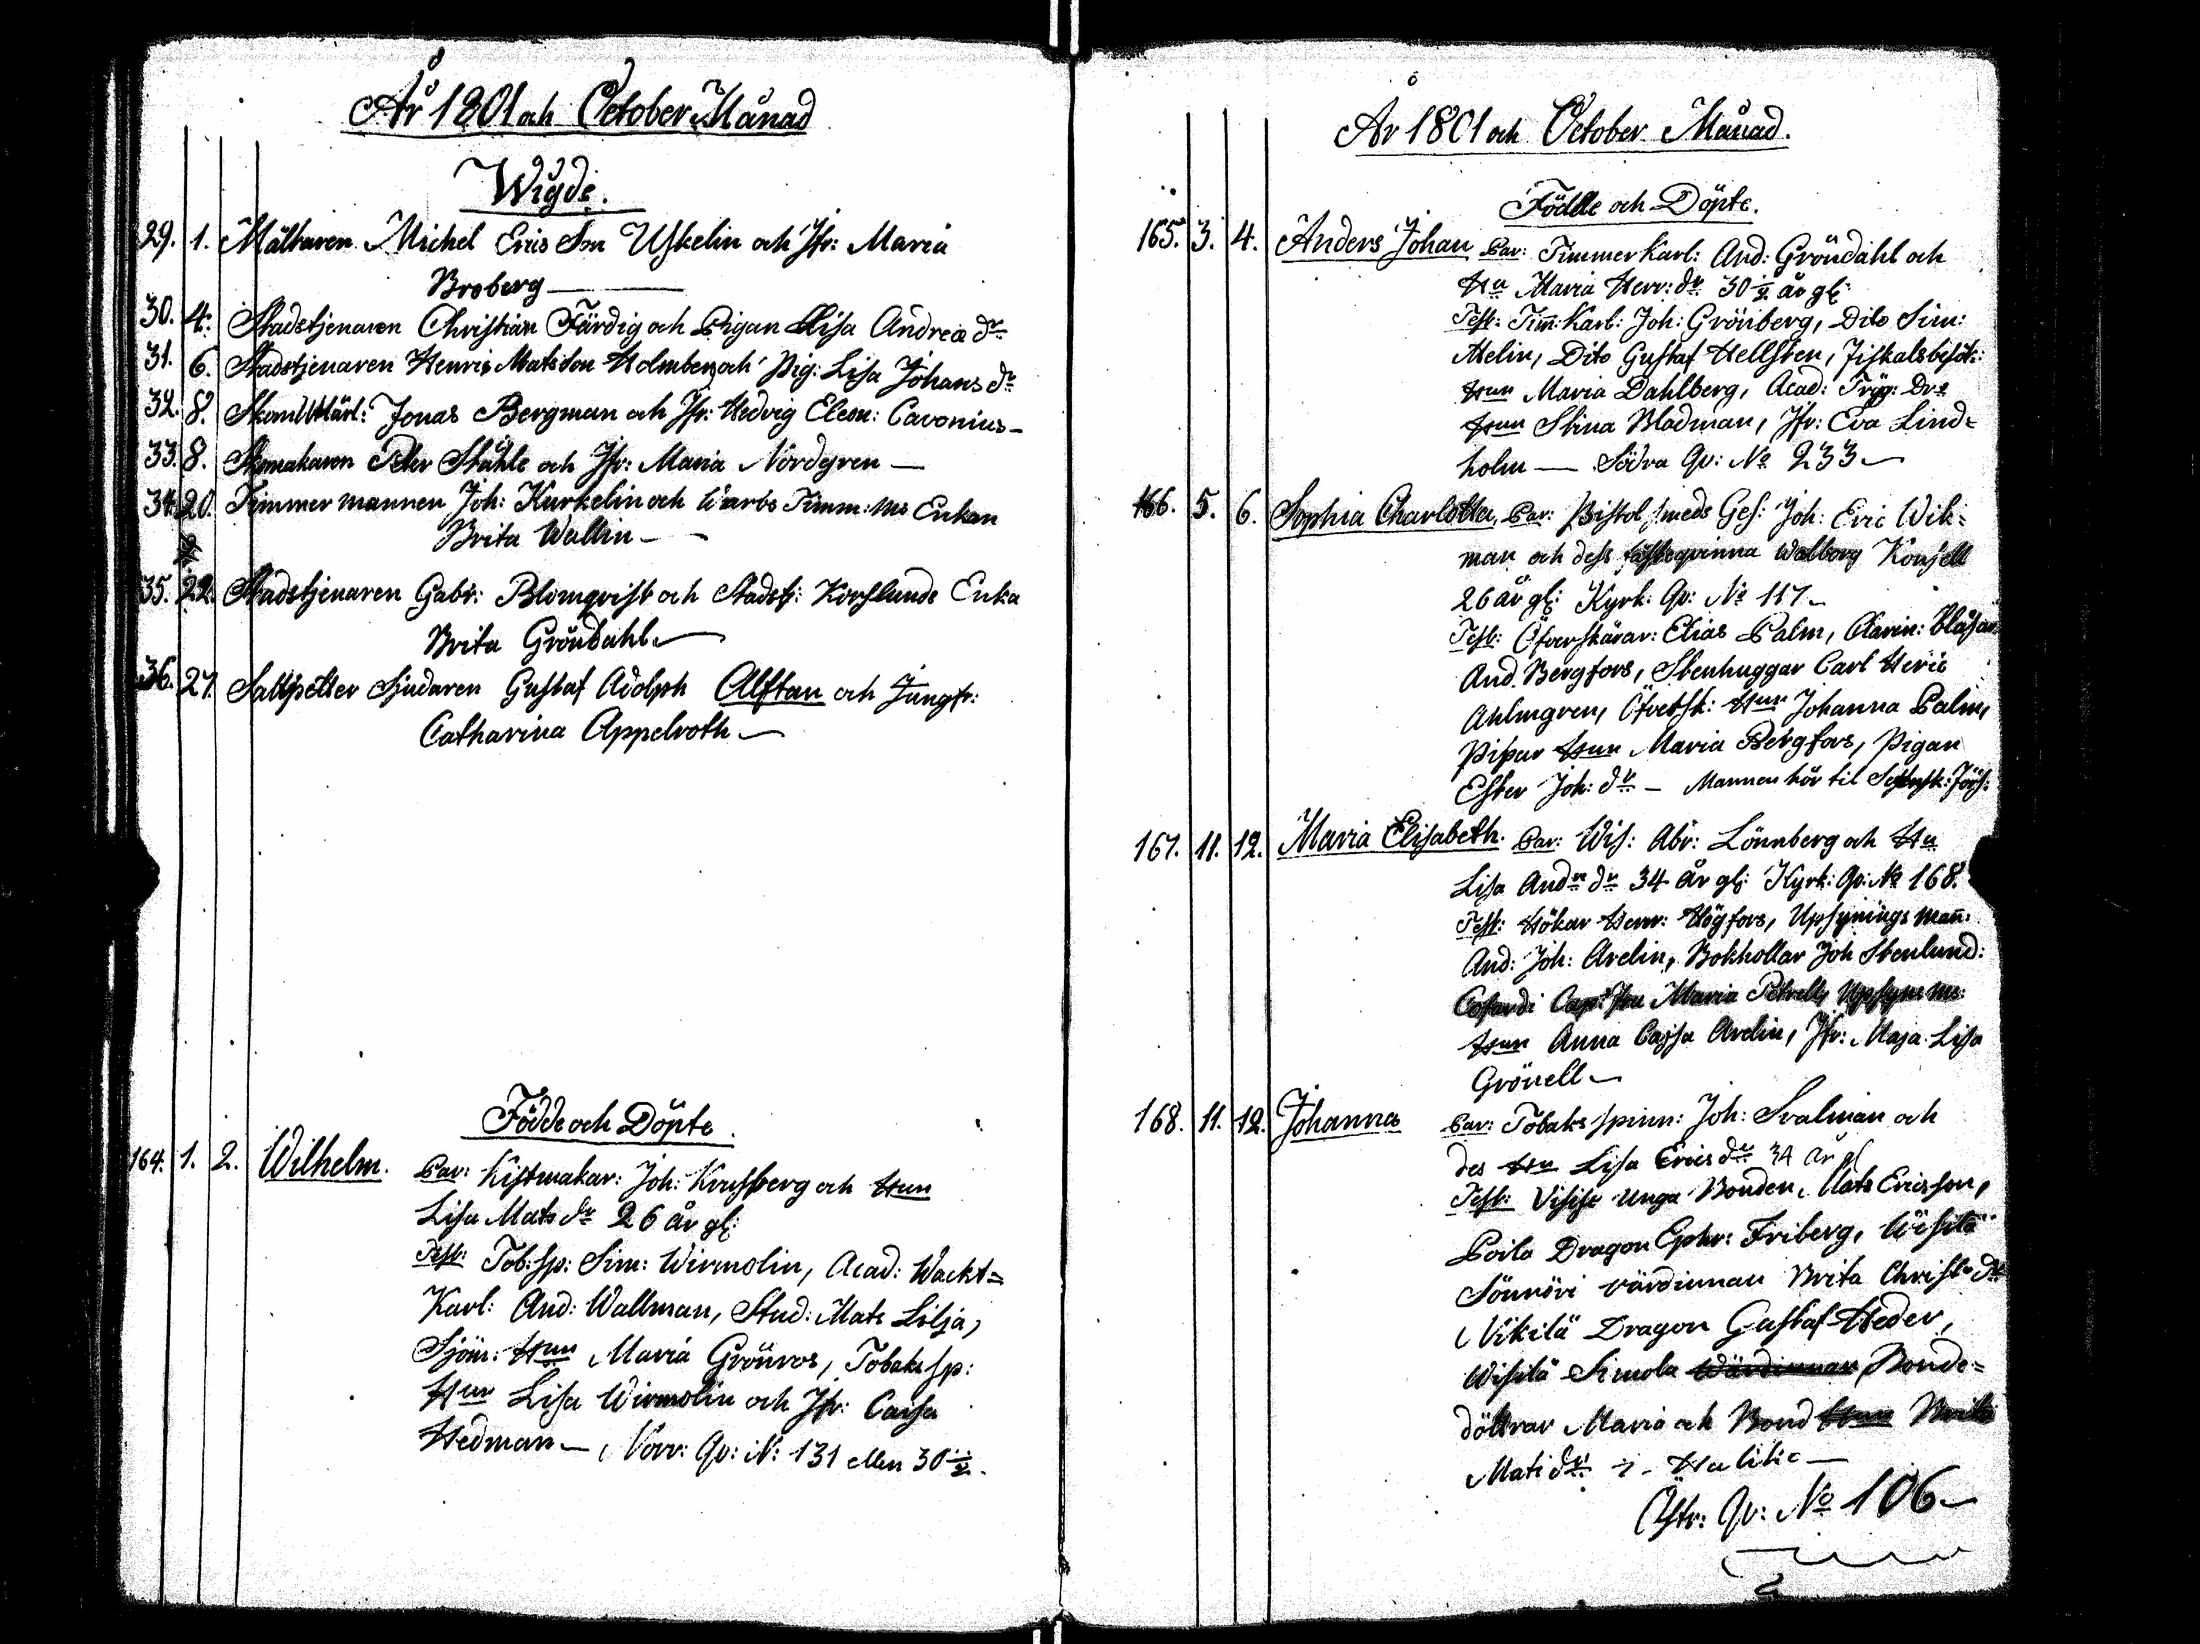 År 1801 och October Månad
Wigde.
29. 1. Mältaren Michel Erics Son Uskelin och Jfr: Maria
Broberg
30. 4. Stadstjenaren Christian Färdig och Pigan Lisa Andreæ dr
31. 6. Stadstjenaren Henric Matsson Holmberg och Pig: Lisa Johans dr
32. 8. Jonas Bergman och Jfr: Hedvig Eleon: Cavonius
33. 8. Skomakaren Petter Ståhle och Jfr: Maria Nordgren
34. 20. Timmermannen Joh: Kurkelin och Warbs Timm:ms Enkan
Brita Wallin
35. 22. Stadstjenaren Gabr: Blomqvist och Stadstj: Korslunds Enka
Brita Gröndahl
36. 27. Saltpetter Sjudaren Gustaf Adolph Alftan och Jungfr:
Catharina Appelroth
Födde och Döpte.
164. 1. 2. Wilhelm. Par: Kistmakar: Joh: Krusberg och Hun
Lisa Mats dr 26 år gl:
Test: Tob:sp: Sim: Wirmolin, Acad: Wackt=
Karl: And: Wallman, Stud: Mats Lilja,
Sjöm: Hun Maria Grönros, Tobaks sp:
Hun Lisa Wirmolin och Jfr: Caisa
Hedman Norr: Qv: N: 131 eller 30 1/2.
År 1801 och October Månad.
Födde och Döpte.
165. 3. 4. Anders Johan Par: Timmerkarl: And: Gröndahl och
Hu Maria Henr: dr 30 1/2 år gl:
Test: Tim: Karl: Joh: Grönberg, Dito Sim:
Melin, Dito Gustaf Hellsten, Fiskalsbesöt:
Hun Maria Dahlberg, Acad: Tryg: Drs
Hun Stina Bladman, Jfr: Eva Lind=
holm Södra Qv: No 233
166. 5. 6. Sophia Charlotta, Par: Pistol smeds Ges: Joh: Eric Wik=
man och dess fästeqvinna Walborg Konsell
26 år gl: Kyrk: Qv: No 117
Test: Öfverskärar: Elias Palm, Clarin: blåsar
And. Bergfors, Stenhuggar Carl Heric
Ahlmgren, Öfversk: Hun Johanna Palm,
Pipar Hun Maria Bergfors, Pigan
Ester Joh: dr Mannen hör til
167. 11. 12. Maria Elisabeth. Par: Wis: Abr: Lönnberg och Hu
Lisa Andrs dr 34 år gl: Kyrk: Qv: No 168.
Test: Hökar Henr: Högfors, Upsynings man:
And: Joh: Arelin, Bokhollar Joh Stenlund:
Cofardi Cap: fru Maria Petrell, Upsyns ms:
Hun Anna Caisa Arelin, Jfr: Maja Lisa
Grönell
168. 11. 12. Johanna Par: Tobaks spinn: Joh: Svalman och
des Hu Lisa Erics dr 34 år gl
Test: Visise Unga Bonden, Mats Ericsson,
Poila Dragon Ephr: Friberg, Wisita
Sönnöri värdinnan Brita Christ dr
Nikilä Dragon Gustaf Heder,
Wisitä Simola Wärdinnan Bonde=
döttrar Maria och Bond Hun Brita
Mats dr i
Östr: Qv: No 106